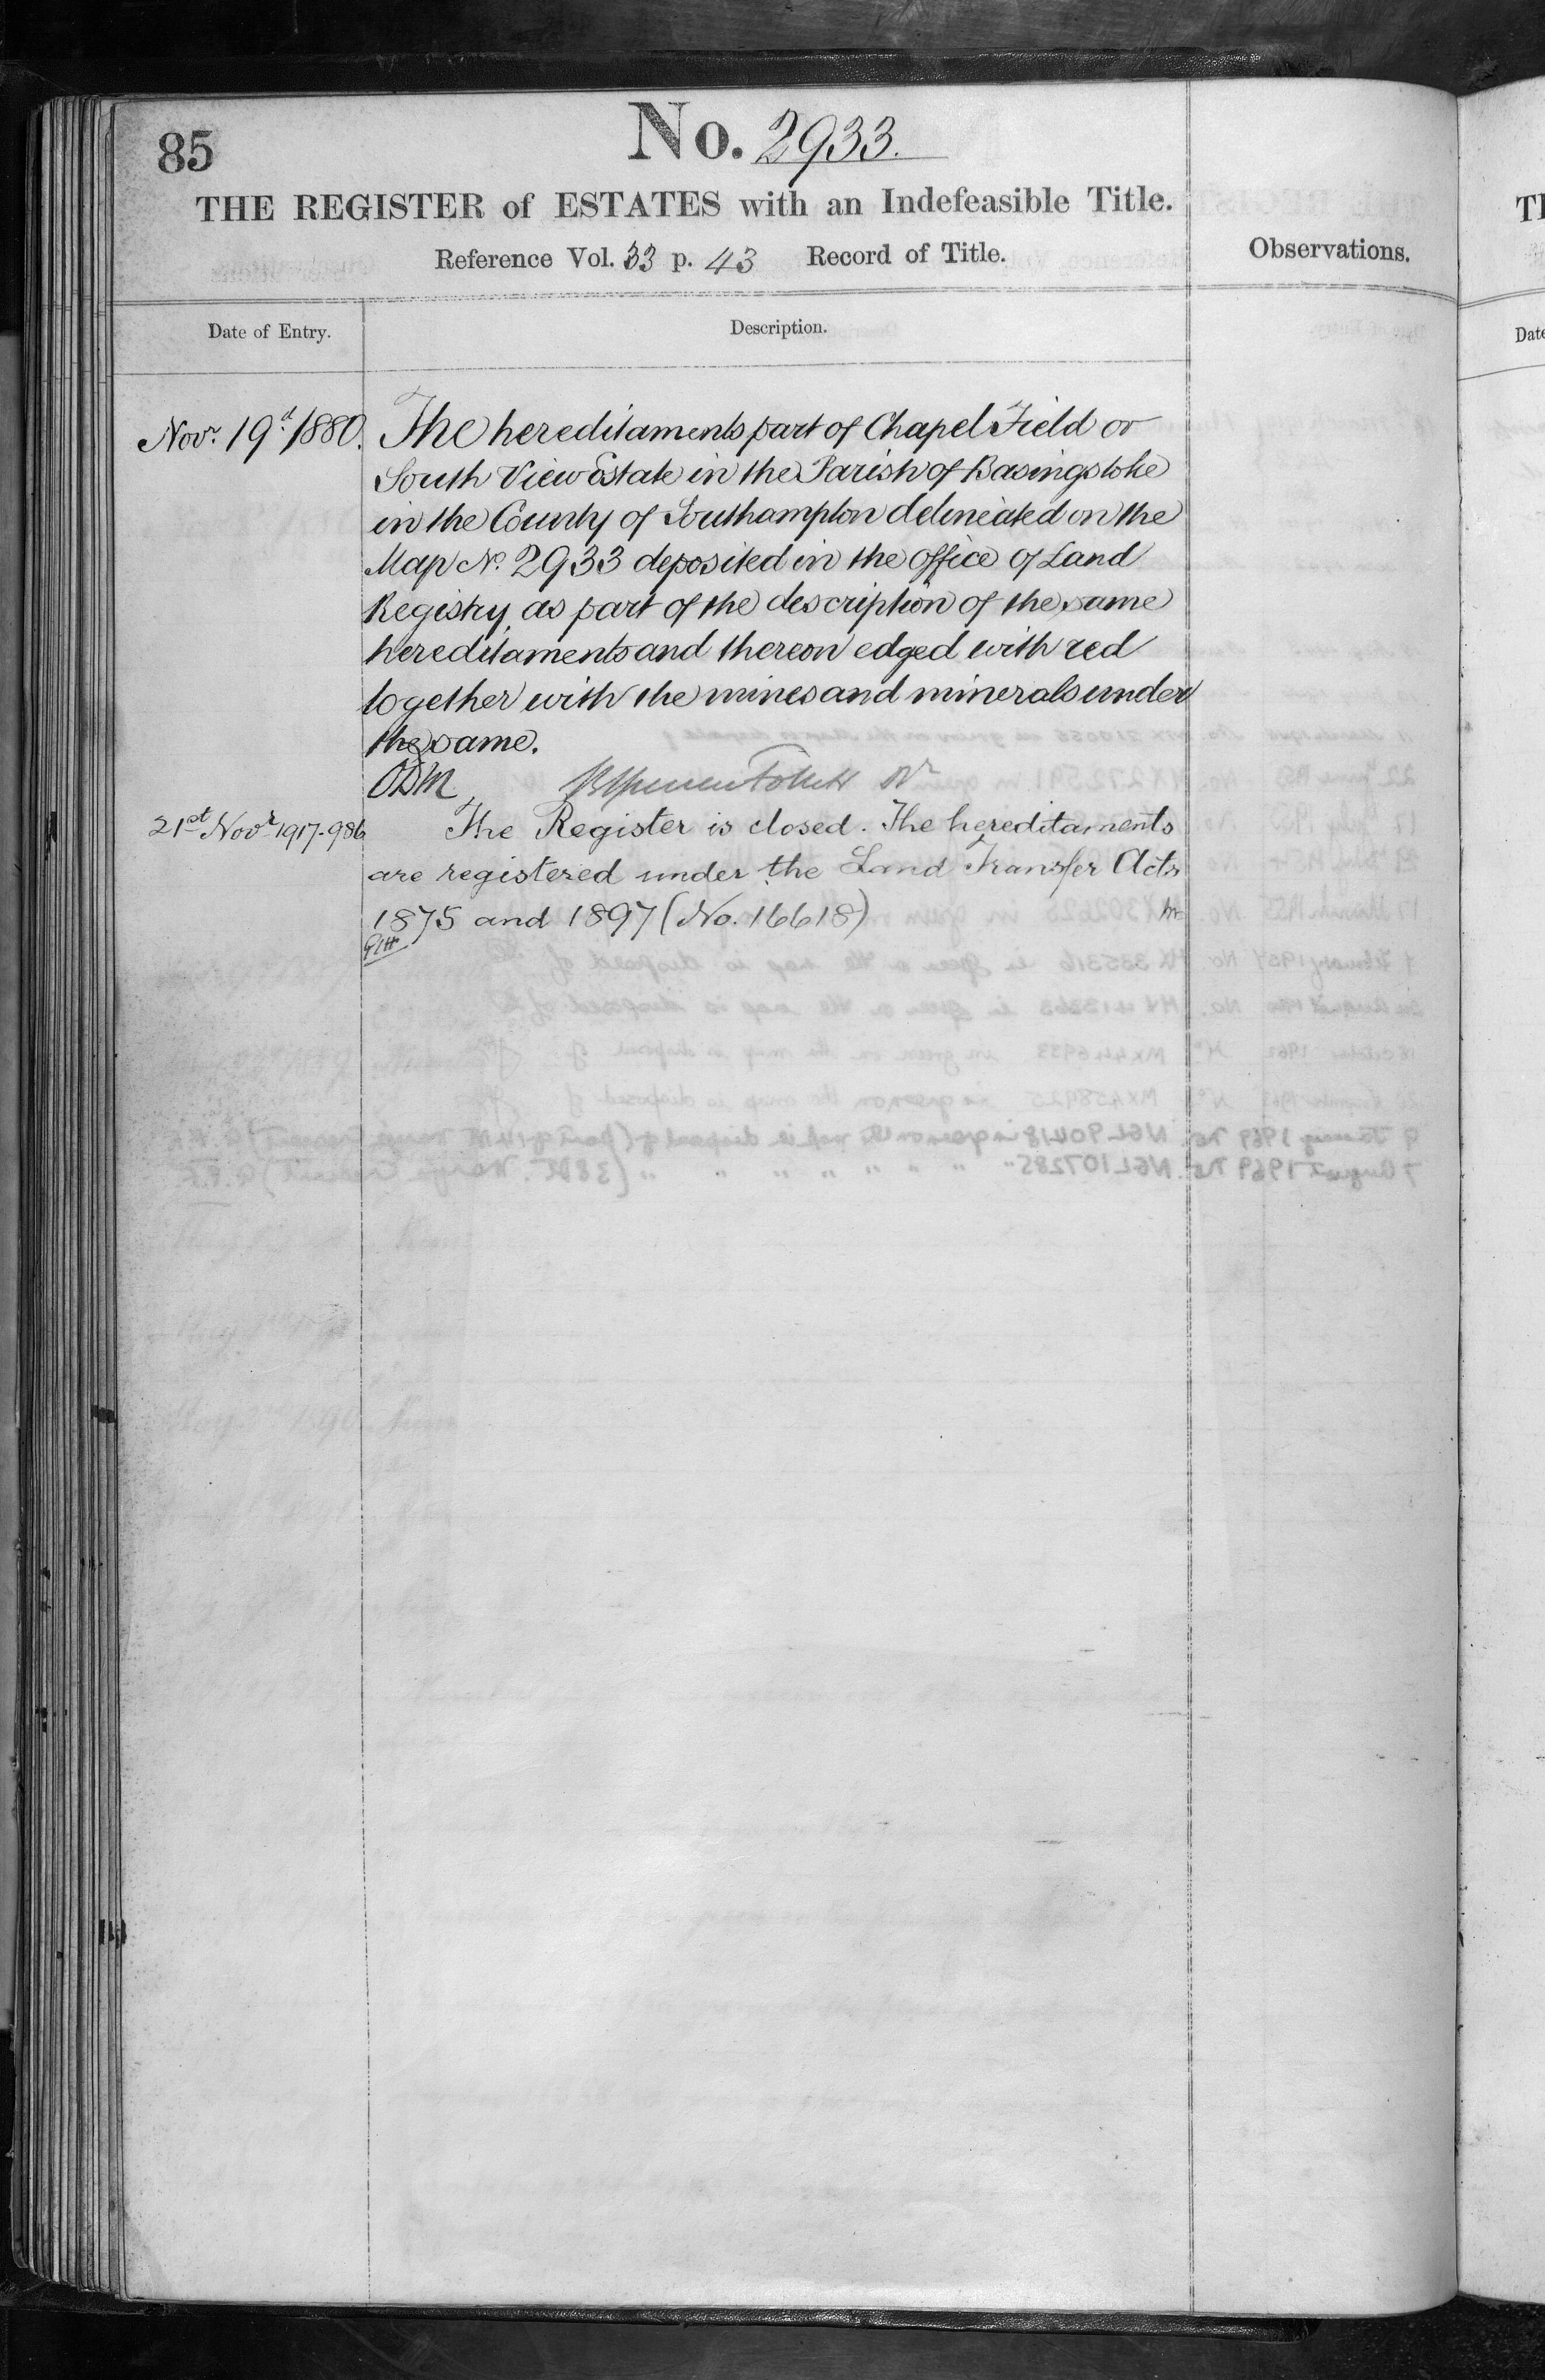 85
No. 2933.
THE REGISTER of ESTATES with an Indefeasible Title.
Reference Vol. 33 p. 43 Record of Title.
Observations.
Date of Entry.
Description.
Novr. 19d. 1880. The hereditaments part of Chapel Field or
South View Estate in the Parish of Basingstoke
in the County of Southampton delineated on the
Map No. 2933 deposited in the office of Land
Registry as part of the description of the same
hereditaments and thereon edged with red
together with the mines and minerals under
the same.
21st Novr 1917. 986 The Register is closed. The hereditaments
are registered under the Land Transfer Acts
1875 and 1897 (No. 16618)